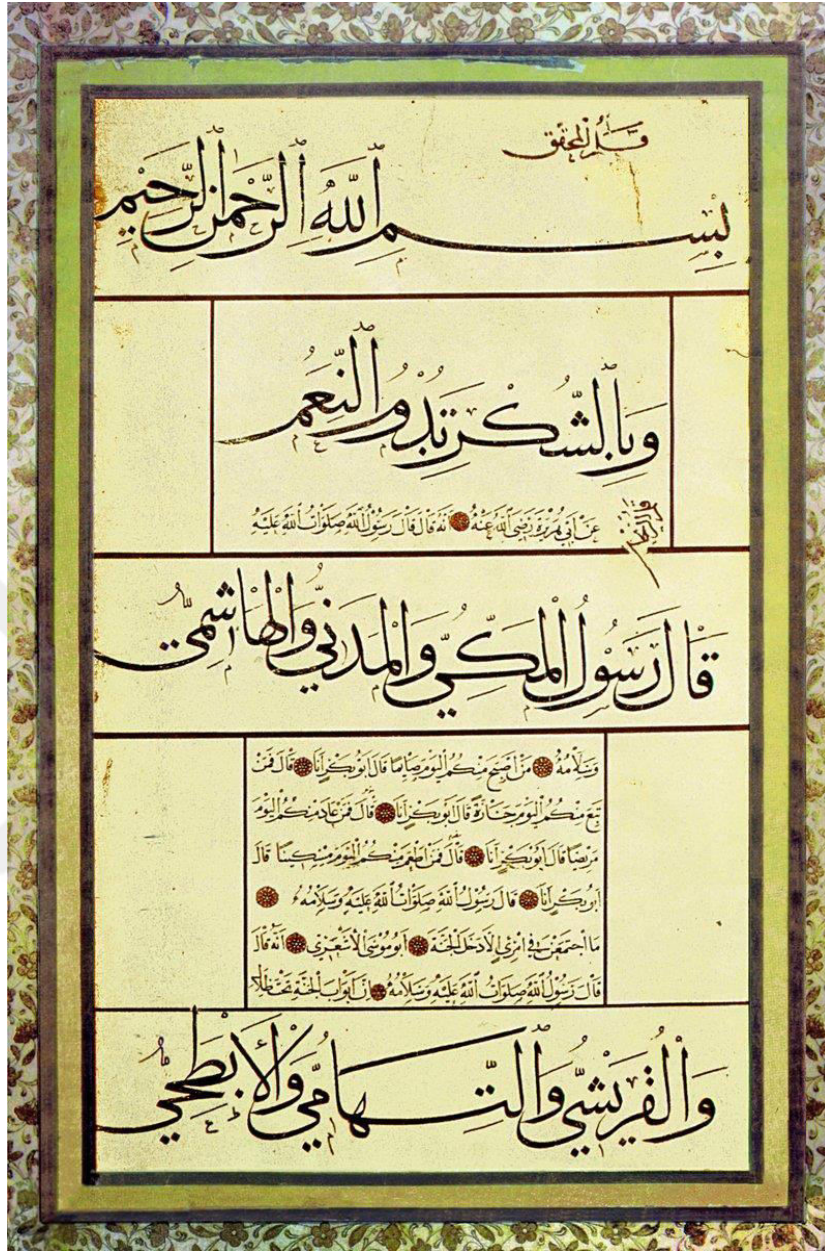 قلم المحقق
بِسْمِ اللَّهِ الرَّحْمٰنِ الرَّحِيمِ
وَبِالشُّكْرِ تَدُومُ النِّعَمُ
عَنْ أَبِي هُرَيْرَةَ رَضِيَ اللَّهُ عَنْهُ أَنَّهُ قَالَ قَالَ رَسُولُ اللَّهِ صَلَوَاتُ اللَّهِ عَلَيْهِ
قَالَ رَسُولُ الْمَكِّيِّ وَالْمَدَنِيِّ وَالْهَاشِمِيِّ
وَسَلَامُهُ مَنْ أَصْبَحَ مِنْكُمُ الْيَوْمَ صَائِمًا قَالَ أَبُو بَكْرٍ أَنَا قَالَ فَمَنْ
تَبِعَ مِنْكُمُ الْيَوْمَ جَنَازَةً قَالَ أَبُو بَكْرٍ أَنَا قَالَ فَمَنْ عَادَ مِنْكُمُ الْيَوْمَ
مَرِيضًا قَالَ أَبُو بَكْرٍ أَنَا قَالَ فَمَنْ أَطْعَمَ مِنْكُمُ الْيَوْمَ مِسْكِينًا قَالَ
أَبُو بَكْرٍ أَنَا قَالَ رَسُولُ اللَّهِ صَلَوَاتُ اللَّهِ عَلَيْهِ وَسَلَامُهُ
مَا اجْتَمَعْنَ فِي امْرِئٍ إِلَّا دَخَلَ الْجَنَّةَ أَبُو مُوسَى الْأَشْعَرِيُّ أَنَّهُ قَالَ
قَالَ رَسُولُ اللَّهِ صَلَوَاتُ اللَّهِ عَلَيْهِ وَسَلَامُهُ إِنَّ أَبْوَابَ الْجَنَّةِ تَحْتَ ظِلَالِ
وَالْقُرَيْشِيِّ وَالتِّهَامِيِّ وَالْأَبْطَحِيِّ